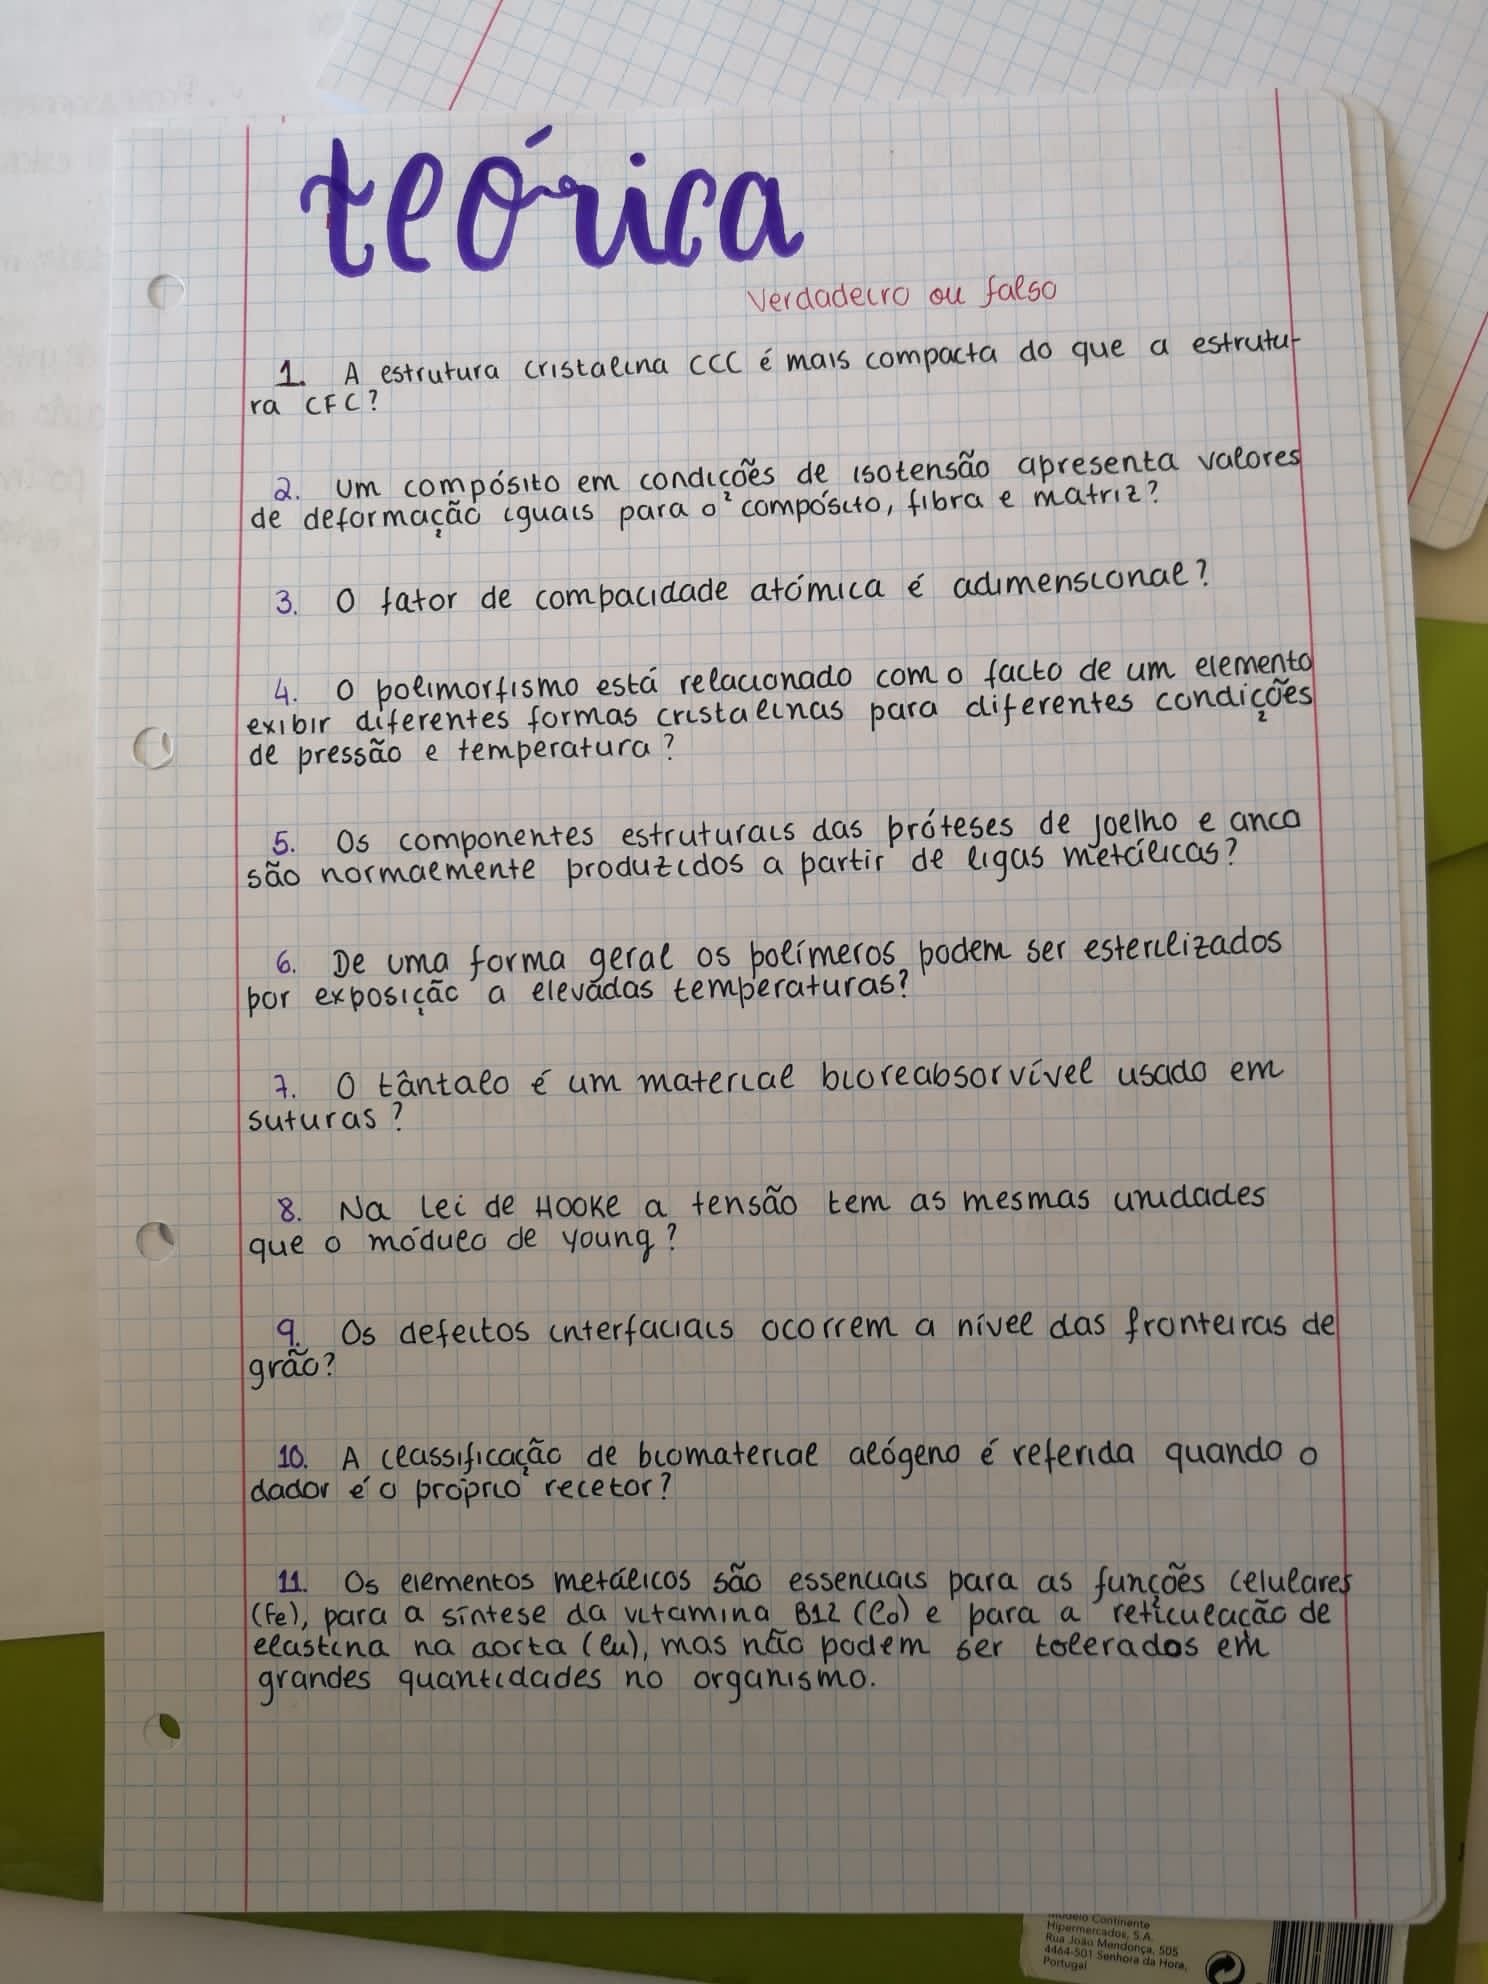 teórica
Verdadeiro ou falso
1. A estrutura cristalina CCC é mais compacta do que a estrutu-
ra CFC?
2. Um compósito em condições de isotensão apresenta valores
de deformação iguais para o compósito, fibra e matriz?
3. O fator de compacidade atómica é adimensional?
4. O polimorfismo está relacionado com o facto de um elemento
exibir diferentes formas cristalinas para diferentes condições
de pressão e temperatura?
5. Os componentes estruturais das próteses de joelho e anca
são normalmente produzidos a partir de ligas metálicas?
6. De uma forma geral os polímeros podem ser esterilizados
por exposição a elevadas temperaturas?
7. O tântalo é um material bioreabsorvível usado em
suturas?
8. Na Lei de HOOKE a tensão tem as mesmas unidades
que o módulo de young?
9. Os defeitos interfaciais ocorrem a nível das fronteiras de
grão?
10. A classificação de biomaterial alógeno é referida quando o
dador é o próprio recetor?
11. Os elementos metálicos são essenciais para as funções celulares
(Fe), para a síntese da vitamina B12 (Co) e para a reticulação de
elastina na aorta (Cu), mas não podem ser tolerados em
grandes quantidades no organismo.
Modelo Continente
Hipermercados, S.A.
Rua João Mendonça, 505
4464-501 Senhora da Hora,
Portugal